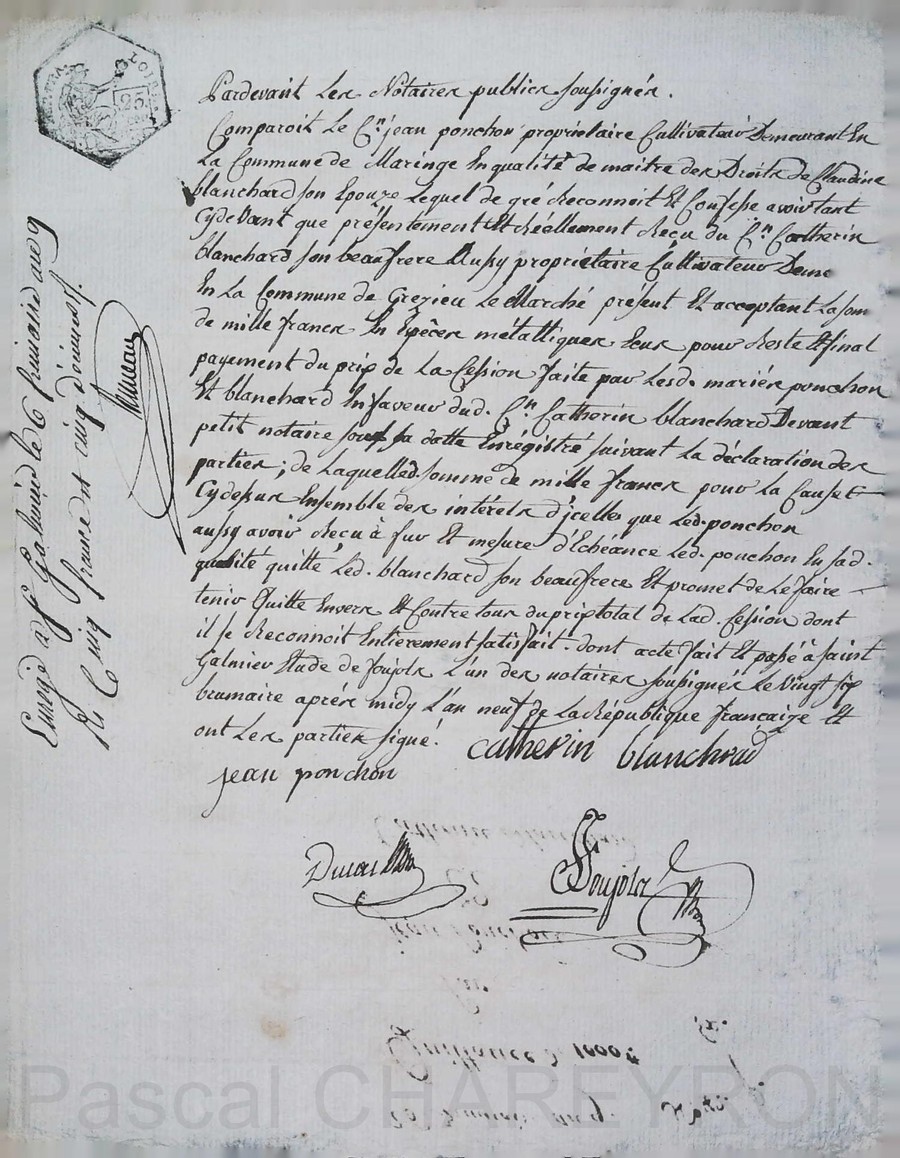 Pardevant Les Notaires publics soussignés.
Comparoit Le C.en jean ponchon propriétaire Cultivateur Demeurant En
La Commune de Maringe En qualité de maitre des Droits de Claudine
blanchard son Epouze Lequel de gré Reconnoit Et Confesse avoir tant
Cydevant que présentement Et Réellement Reçu du C.en Catherin
blanchard son beaufrere Aussy propriétaire Cultivateur Deme
En La Commune de Grezieu Le Marché présent Et acceptant La som
de mille francs En Espêces métalliques Pour Reste Et final
payement du prix de La Cession faite par Lesd. mariés ponchon
Et blanchard En faveur dud. C.en Catherin blanchard Devant
petit notaire sous sa datte Enrégistré suivant La déclaration des
parties; de Laquelled. somme de mille francs pour La Cause
Cydessus Ensemble des intérets d'icelle que Led. ponchon
aussy avoir Reçu à fur Et mesure d'Echéance Led. ponchon En sad.
qualité quitte Led. blanchard son beaufrere Et promet de Le faire
tenir Quitte Envers Et Contre tous du prix total de Lad. Cession dont
il se Reconnoit Entièrement satisfait. dont acte fait Et passé à saint
Galmier Etude de Soujols L'un des notaires soussignés Le vingt six
brumaire après midy L'an neuf de La République francaize Et
ont Les parties signé. Catherin blanchrad
jean ponchon
Soujols
Enregé à St Galmier le 6 frimaire an 9
Rs Cinq francs et cinq décimes
LOIRE
25
Quittance de 1000
Pascal CHAREYRON